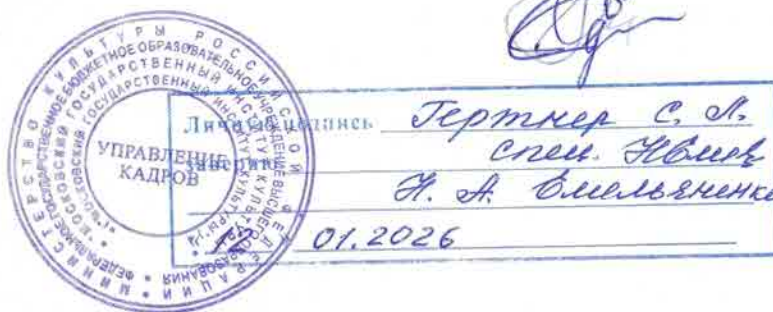 МИНИСТЕРСТВО КУЛЬТУРЫ РОССИЙСКОЙ ФЕДЕРАЦИИ
ФЕДЕРАЛЬНОЕ ГОСУДАРСТВЕННОЕ БЮДЖЕТНОЕ ОБРАЗОВАТЕЛЬНОЕ УЧРЕЖДЕНИЕ ВЫСШЕГО ОБРАЗОВАНИЯ
МОСКОВСКИЙ ГОСУДАРСТВЕННЫЙ ИНСТИТУТ КУЛЬТУРЫ
УПРАВЛЕНИЕ
КАДРОВ
Личную подпись Гертнер С. Л.
заверяю спец.
Н. А. Емельяненко
12 01.2026